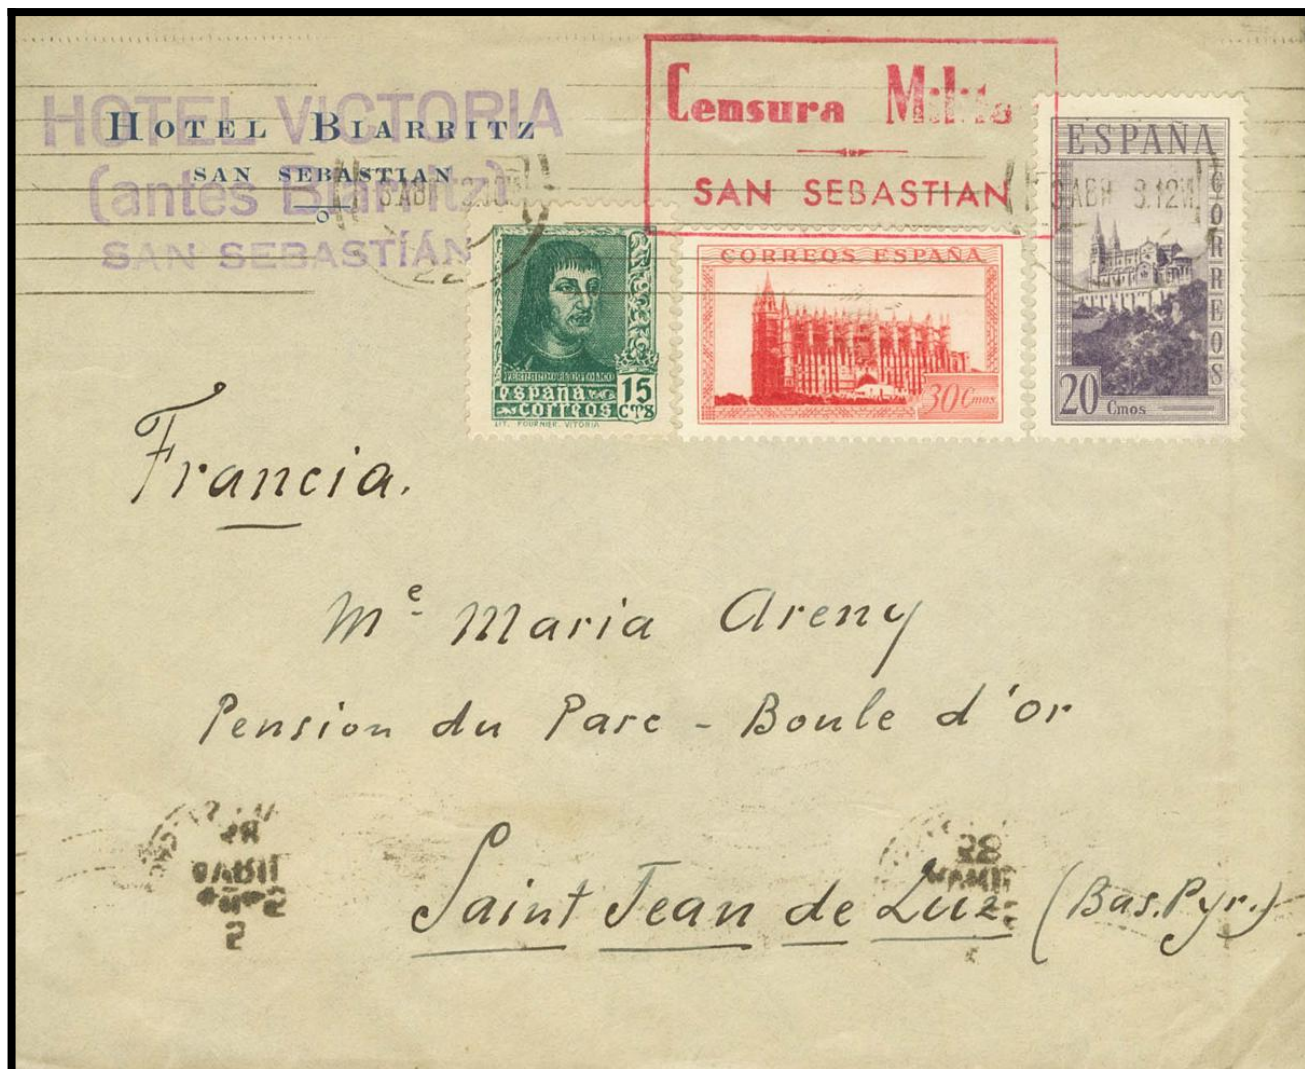 HOTEL VICTORIA
(antes Biarritz)
SAN SEBASTÍAN
HOTEL BIARRITZ
SAN SEBASTIAN
Censura
SAN SEBASTIAN
ESPAÑA
CORREOS
20 Cmos
CORREOS ESPAÑA
30 Cmos
españa
correos
15
CTS
LIT. FOURNIER. VITORIA
Francia.
Me Maria Areny
Pension du Parc - Boule d'or
Saint Jean de Luz (Bas. Pyr.)